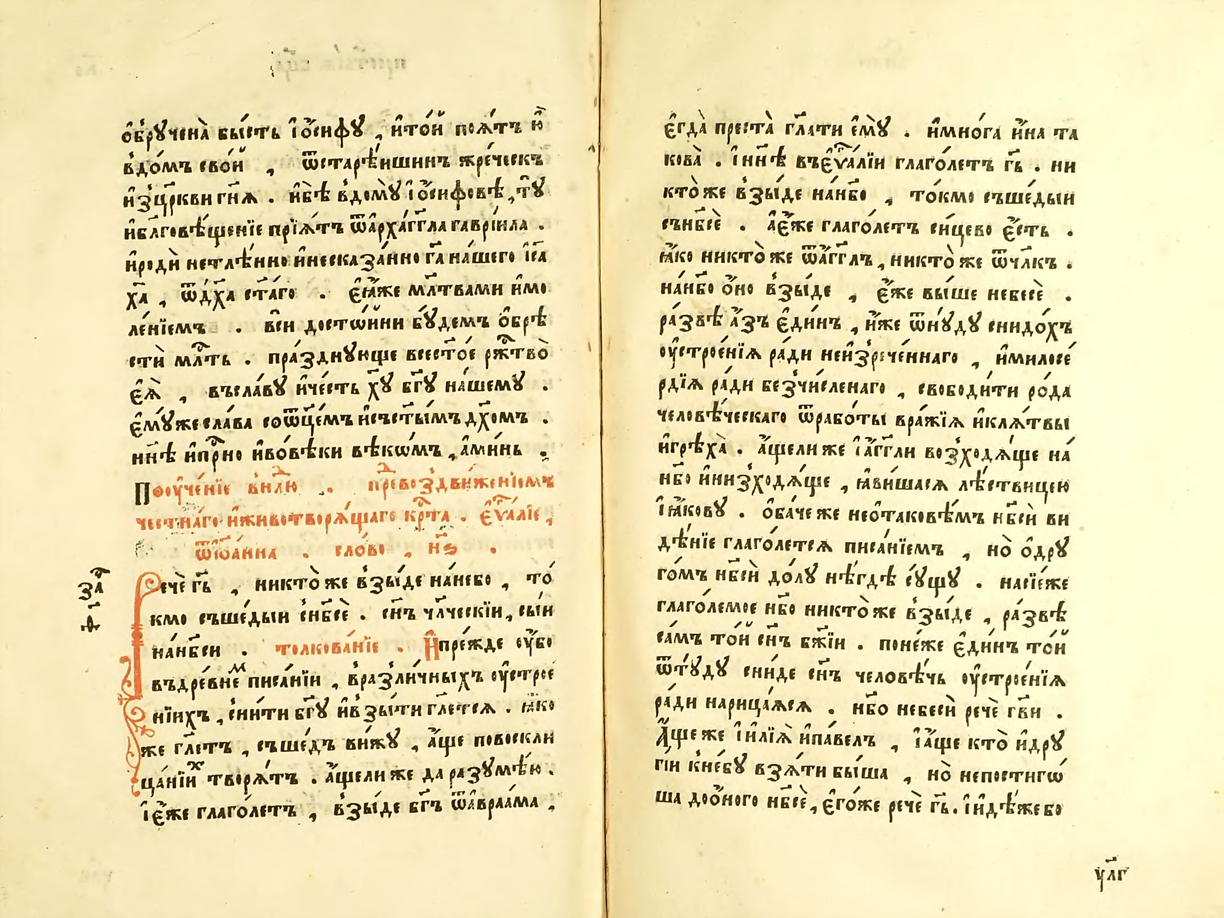 ѻ҆брꙋче́на бы́сть і҆ѻ́сифꙋ , и҆то́й поѧ́тъ ю҆̀
вдо́мъ сво́й , ѿстарѣ́ишинъ жре́ческъ
и҆зц҃ркви гн҃ѧ . и҆бѣ̀ вдомꙋ̀ і҆ѻ́сифовѣ , тꙋ̀
и҆бл҃говѣ́щенїе прїѧ́тъ ѿа҆рха́гг҃ла гаврїи́ла .
и҆родѝ нетлѣ́нно и҆несказа́нно га҃ на́шего і҆са҃
ха҃ , ѿдх҃а ст҃а́го . є҆ѧ́же мл҃твами и҆мо
ле́нїемъ . вси досто́йни бꙋ́демъ ѻ҆брѣ
стѝ мл҃ть . пра́зднꙋюще всест҃о́е рж҃тво̀
є҆ѧ̀ , въсла́вꙋ и҆че́сть хꙋ҃ бг҃ꙋ на́шемꙋ .
є҆мꙋ́же сла́ва соѿц҃е́мъ и҆съст҃ы́мъ дх҃омъ .
нн҃ѣ и҆при́сно и҆во́вѣки вѣкѡ́мъ , а҆ми́нь .
Поꙋче́нїе внл҃ю . превоздви́женїемъ
честна́го и҆животворѧ́щаго крⷭ҇та̀ . є҆ѵⷢ҇а́лїе ,
ѿїѡа́нна . сло́во , н҃ѕ .
за҃
д҃
Речѐ гь҃ , никто́же взы́де на́небо , то́
кмо съше́дыи сн҃бсѐ . сн҃ъ чл҃ческїи , сы́и
на́нб҃си . толкова́нїе . И҆пре́жде ᲂу҆́бо
въдре́внемъ писа́нїи , вразли́чныхъ ᲂу҆строе
нїихъ , сни́ти бг҃ꙋ и҆взы́ти гл҃етсѧ . ꙗ҆́ко
же гл҃етъ , съше́дъ ви́жꙋ , а҆́ще повоскли
ца́нїихъ творѧ́тъ . а҆́щели же да разꙋмѣ́ю .
і҆є҆́же глаго́летъ , взы́де бг҃ъ ѿа҆враа́ма ,
є҆гда̀ преста̀ гл҃ати є҆мꙋ̀ . и҆мно́га и҆́на та
кова̀ . і҆нн҃ѣ въє҆ѵⷢ҇а́лїи глаго́летъ гь҃ . ни
кто́же взы́де на́нб҃о , то́кмо съше́дыи
сънб҃сѐ . а҆є҆́же глаго́летъ си́цево є҆́сть .
ꙗ҆́ко никто́же ѿа҆́гг҃лъ , никто́же ѿчл҃къ .
на́нб҃о ѻ҆́но взы́де , є҆́же вы́ше небесѐ .
ра́звѣ а҆́зъ є҆ди́нъ , и҆́же ѿнꙋ́дꙋ снидо́хъ
ᲂу҆строе́нїѧ ра́ди неи҆зрече́ннаго , и҆милосе́
рдїѧ ра́ди безчи́сленаго , свободи́ти ро́да
человѣ́ческаго ѿрабо́ты вра́жїѧ и҆клѧ́твы
и҆грѣха̀ . а҆́щели же і҆а҆́гг҃ли возходѧ́ще на́
нб҃о и҆низходѧ́ще , ꙗ҆ви́шасѧ лѣ́ствицею
і҆ꙗ҆́ковꙋ . ѻ҆ба́че же неѻ҆таковѣ́мъ нб҃си́ ви
дѣ́нїе глаго́летсѧ писа́нїемъ , но̀ ѻ҆дрꙋ
го́мъ нб҃си́ до́лꙋ нѣ́гдѣ сꙋ́щꙋ . насїе́же
глаго́лемое нб҃о никто́же взы́де , ра́звѣ
са́мъ то́й сн҃ъ бж҃їи . поне́же є҆ди́нъ то́й
ѿтꙋ́дꙋ сни́де сн҃ъ человѣ́чь ᲂу҆строе́нїѧ
ра́ди нарица́ѧсѧ . нб҃о небесѝ речѐ гв҃и .
А҆́ще же і҆илїѧ̀ и҆па́велъ , і҆а҆́ще кто̀ и҆дрꙋ
гїи кне́бꙋ взѧ́ти бы́ша , но̀ непостиго́
ша доѻ҆́ного нб҃сѐ , є҆го́же речѐ гь҃ . і҆идѣ́же бо
ꙋ҃лг